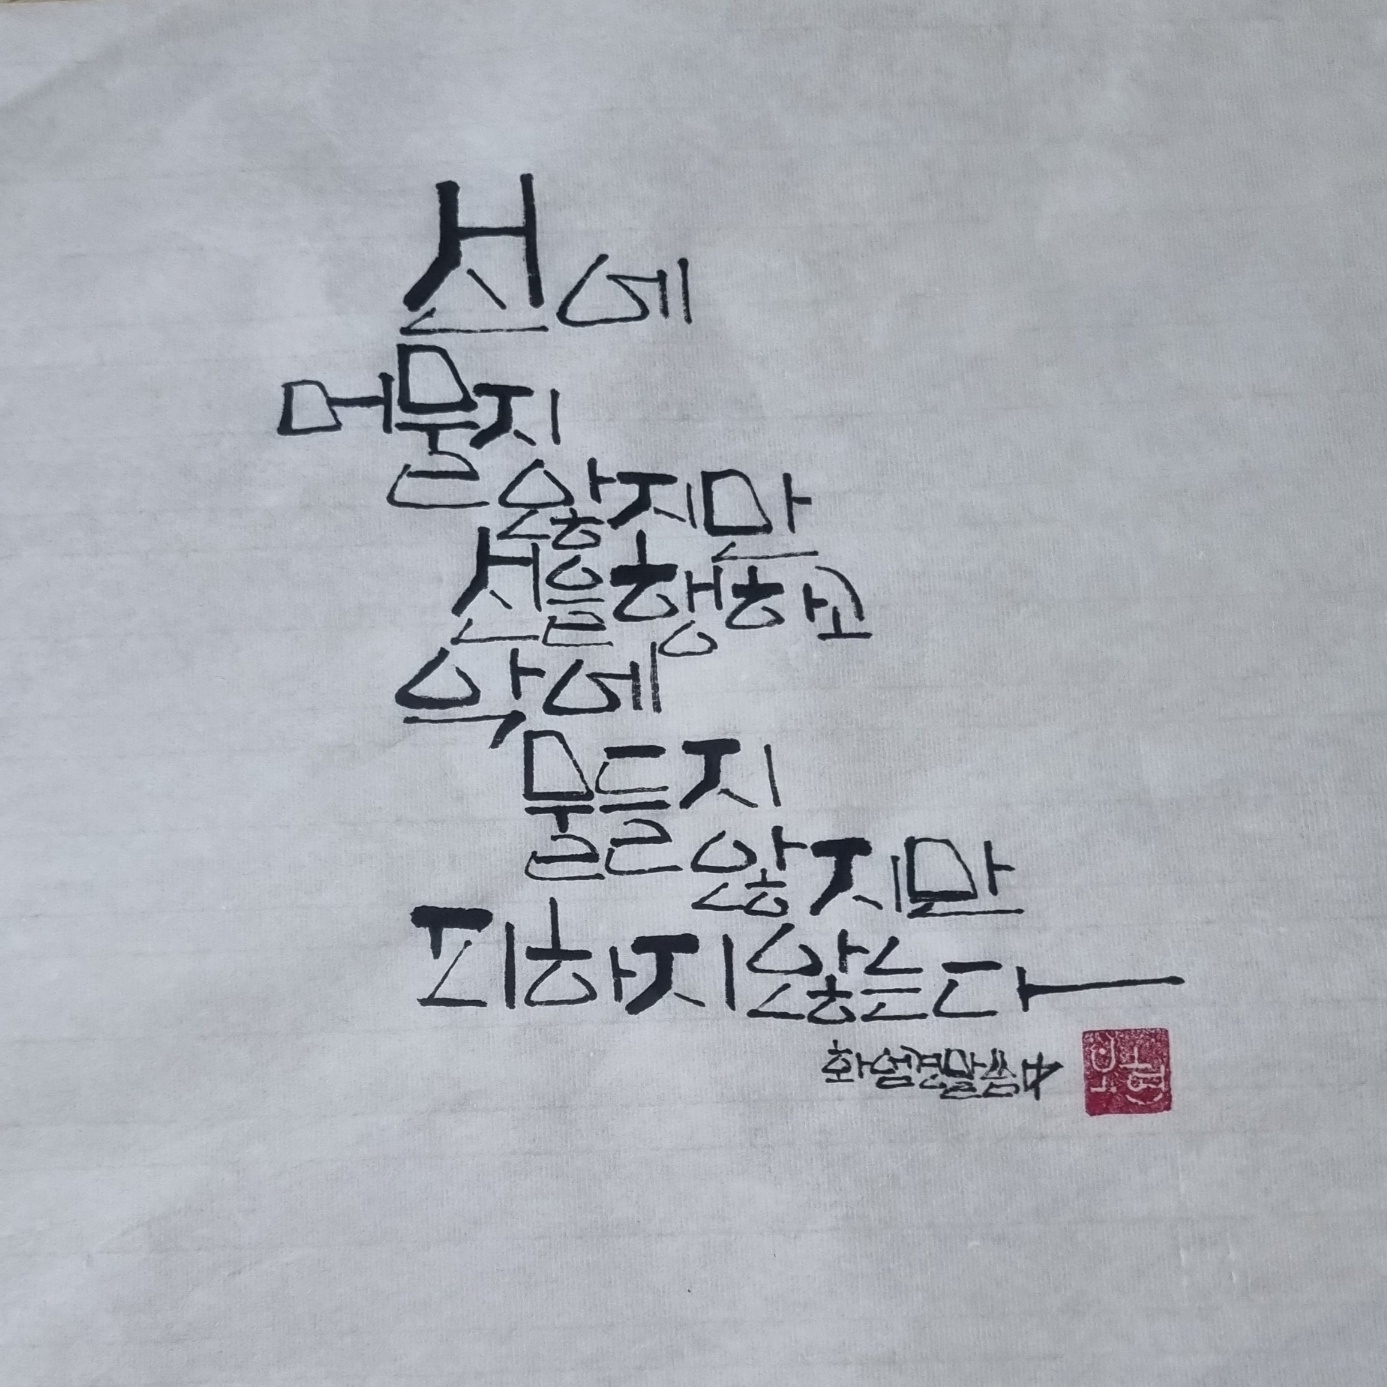 선에
머물지
않지만
선을행하고
악에
물들지
않지만
피하지않는다
화엄경말씀中